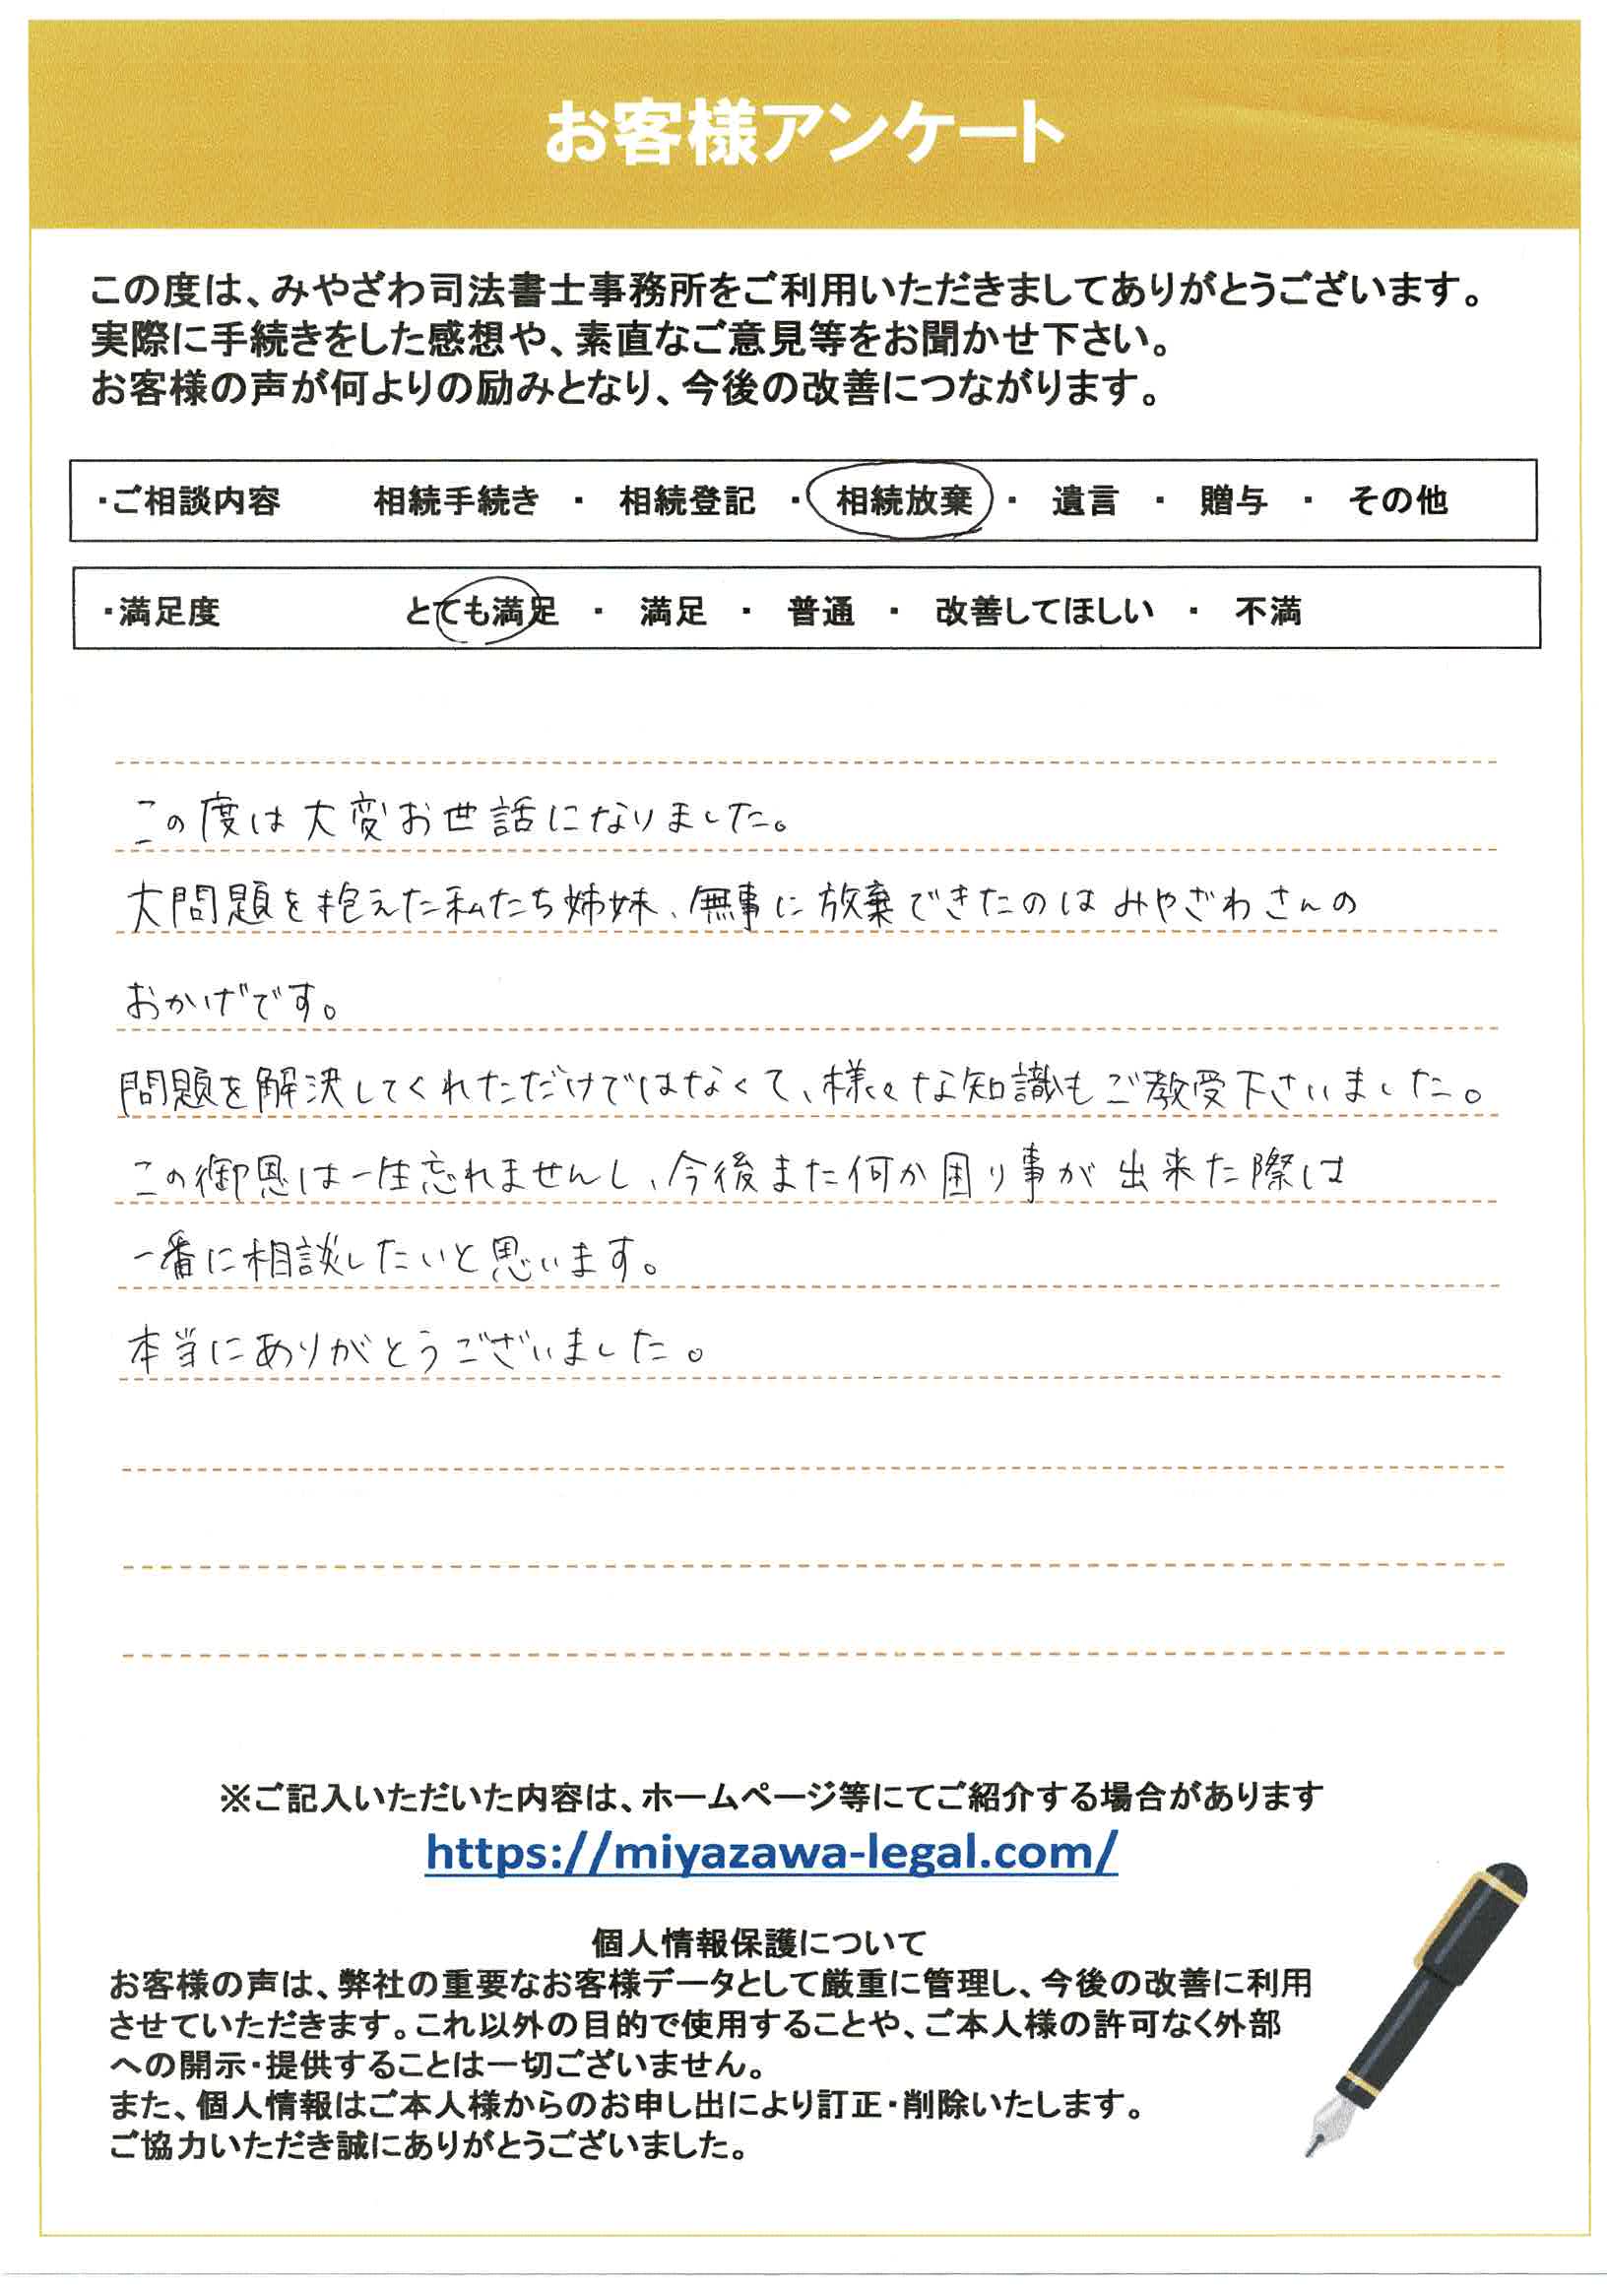 お客様アンケート
この度は、みやざわ司法書士事務所をご利用いただきましてありがとうございます。
実際に手続きをした感想や、素直なご意見等をお聞かせ下さい。
お客様の声が何よりの励みとなり、今後の改善につながります。
・ご相談内容 相続手続き ・ 相続登記 ・ 相続放棄 ・ 遺言 ・ 贈与 ・ その他
・満足度 とても満足 ・ 満足 ・ 普通 ・ 改善してほしい ・ 不満
この度は大変お世話になりました。
大問題を抱えた私たち姉妹、無事に放棄できたのはみやざわさんの
おかげです。
問題を解決してくれただけではなくて、様々な知識もご教受下さいました。
この御恩は一生忘れませんし、今後また何か困り事が出来た際は
一番に相談したいと思います。
本当にありがとうございました。
※ご記入いただいた内容は、ホームページ等にてご紹介する場合があります
https://miyazawa-legal.com/
個人情報保護について
お客様の声は、弊社の重要なお客様データとして厳重に管理し、今後の改善に利用
させていただきます。これ以外の目的で使用することや、ご本人様の許可なく外部
への開示・提供することは一切ございません。
また、個人情報はご本人様からのお申し出により訂正・削除いたします。
ご協力いただき誠にありがとうございました。